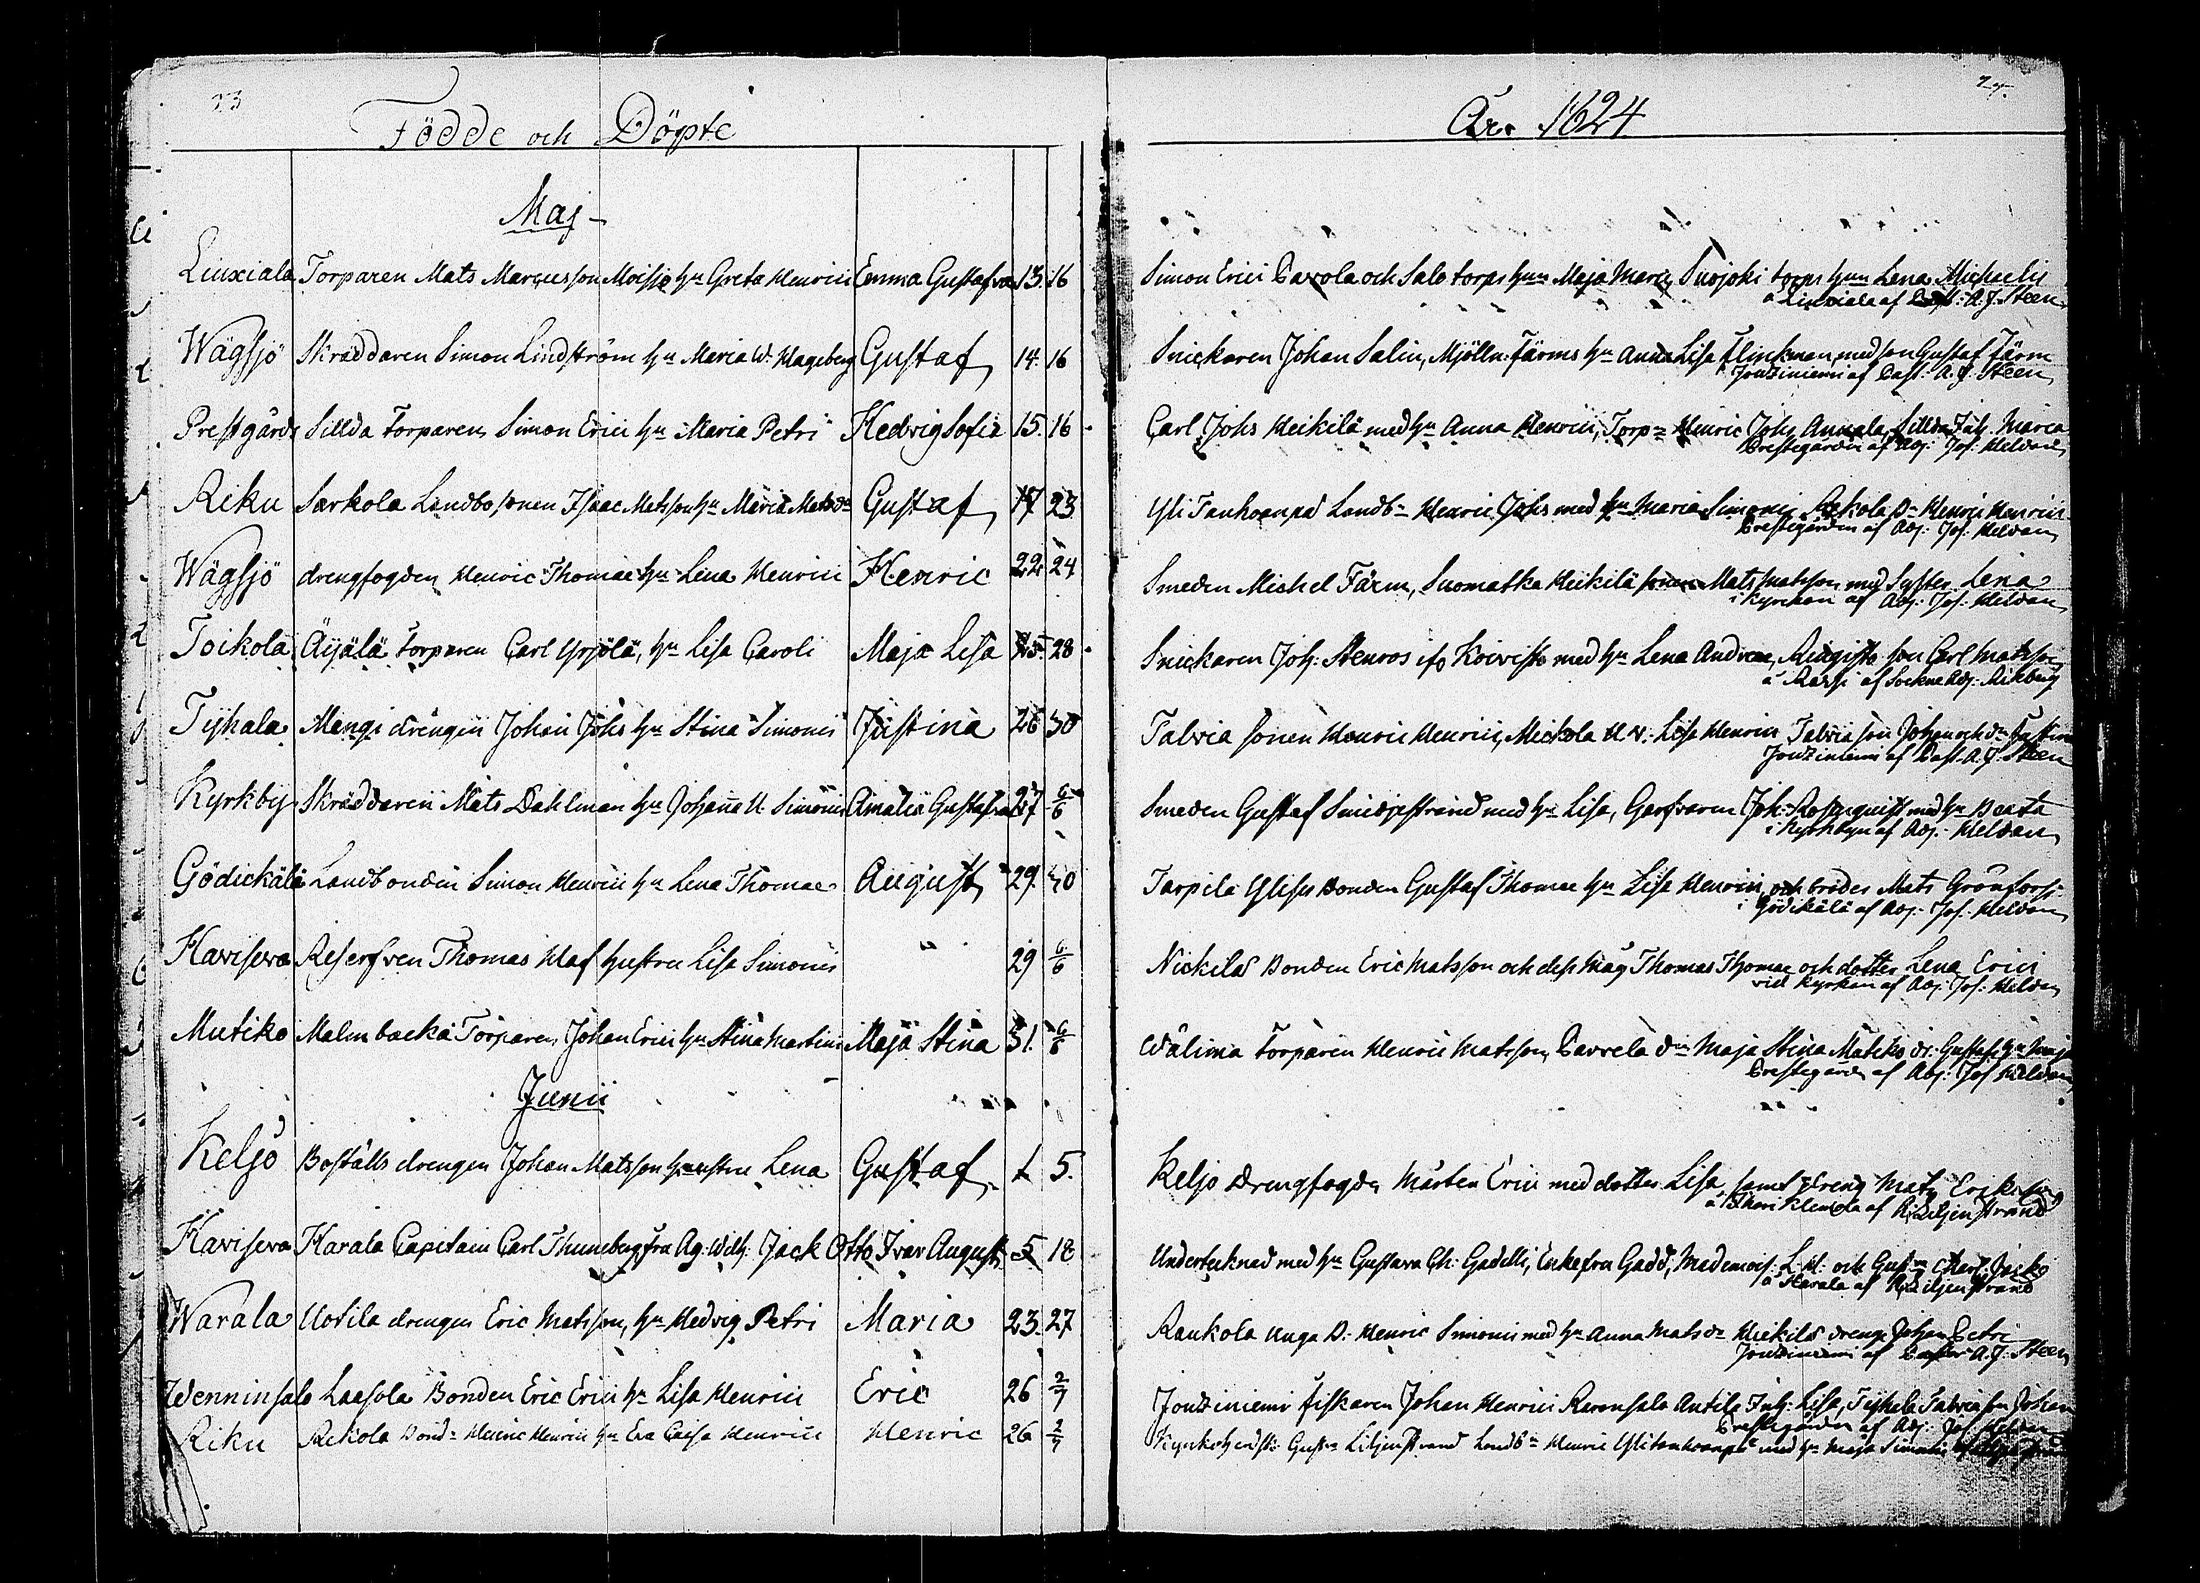 23
Födde och Döpte
Maj
Liuxiala Torparen Mats Marcusson Moisio hu Greta Henrici Emma Gustafva 13. 16
Wägsjö Skräddaren Simon Lindström hu Maria W. Hageberg Gustaf 14. 16
Prestgårds Sillda Torparen Simon Erici hu Maria Petri Hedvig Sofia 15. 16
Riku Sarkola Landbo sonen Isaac Matsson hu Maria Matsdr Gustaf 17 23
Wägsjö drengfogden Henric Thomae hu Lena Henrici Henric 22. 24
Toikola Äijälä torparen Carl Yrjölä, hu Lisa Caroli Maja Lisa 25. 28
Tyhala Mangi drengen Johan Johs hu Stina Simonis Justina 26 30
Kyrkby Skräddaren Mats Dahlman hu Johanna U. Simonis Amalia Gustafva 27 6/6
Gödickälä Landbonden Simon Henrici hu Lena Thomae August 29. 30
Havisevа Reserfven Thomas Haf hustru Lisa Simonis " 29 6/6
Mutiko Malmbacka Torparen Johan Erici hu Stina Martini Maja Stina 31. 6/6
Junii
Keljo Boställs drengen Johan Matsson hustru Lena Gustaf 1 5.
Havisevа Karala Capitain Carl Thuneberg fru Ag: Wilh: Jack Otto Ivar August 5 18
Warala Uotila drengen Eric Matsson, hu Hedvig Petri Maria 23. 27
Wenninsalo Laasola Bonden Eric Erici hu Lisa Henrici Eric 26 2/7
Riku Rekola Bond: Henric Henrici hu Eva Caisa Henrici Henric 26 2/7
År 1824
Simon Erici Pavola och Salo torps hun Maja Marci, Suojoki torps hun Lena Michaelis
a Liuxiala af A. J. Steen
Snickaren Johan Salin, Mjölln: Färms hu Anna Lisa Flinkman med son Gustaf Färm
Jouziniemi af Past. A. J. Steen
Carl Johs Heikilä med hu Anna Henrici, Torp: Henric Johs Annala, Sillda Inh. Maria
Prestegården af Adj: Jos: Heldan
Yli Tanhuanpä Landb: Henric Johs med hu Maria Simonis, Rekola D: Henric Henrici
Prestegården af Adj: Jos: Heldan
Smeden Michel Färm, Suomatka Heikilä sonen Mats Matsson med Syster Lena
i Kyrckan af Adj: Jos: Heldan
Snickaren Joh: Stenros ifr Koivisto med hu Lena Andreae, Ringisto son Carl Matsson
a Rassi af Sockne Adj: Rikberg
Talvia sonen Henric Henrici, Mickola H. v: Lisa Henrici Talvia son Johan och dr Justina
Jouziniemi af Past. A. J. Steen
Smeden Gustaf Smidjestrand med hu Lisa, Garfvaren Joh: Rosenquist med hu Beata
i Kyrkbyn af Adj: Heldan
Tarpila Ylisen Bonden Gustaf Thomae hu Lisa Henrici, och broder Mats Grönfors
i Gödikälä af Adj: Jos: Heldan
Nickilä Bonden Eric Matsson och dess Måg Thomas Thomae och dotter Lena Erici
vid Kyrkan af Adj: Jos: Heldan
Wälimä Torparen Henric Matsson, Pavvela dr Maja Stina Mutiko dr: Gustaf hu Maja
Prestegården af Adj: Jos Heldan
Keljo Drengfogden Mårten Erici med dotter Lisa samt Dreng Mats Eriksson
af Liljenstrand
Undertecknad med hu Gustava Ch: Gadelli, Enkefru Gadd, Mademois: L. H: och Gusta Charl: Jack
a Karala af Liljenstrand
Raukola Unga B: Henric Simonis med hu Anna Matsdr Heikilä dreng Johan Petri
Jouziniemi af Pastor A. J. Steen
Jouziniemi fiskaren Johan Henrici Ravonsalo Antila Inh: Lisa, Tyhala Talvia son Johan
Prestegården af Adj: Jos: Heldan
Kyrkoherdsk: Gusta Liljenstrand Landb: Henric Ylitanhuanpä med hu Maja Simonis